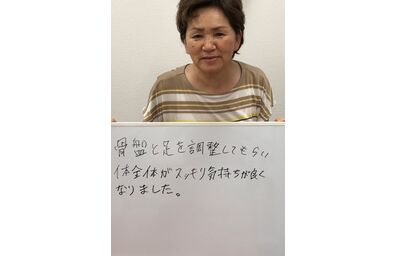 骨盤と足を調整してもらい
体全体がスッキリ気持ちが良く
なりました。